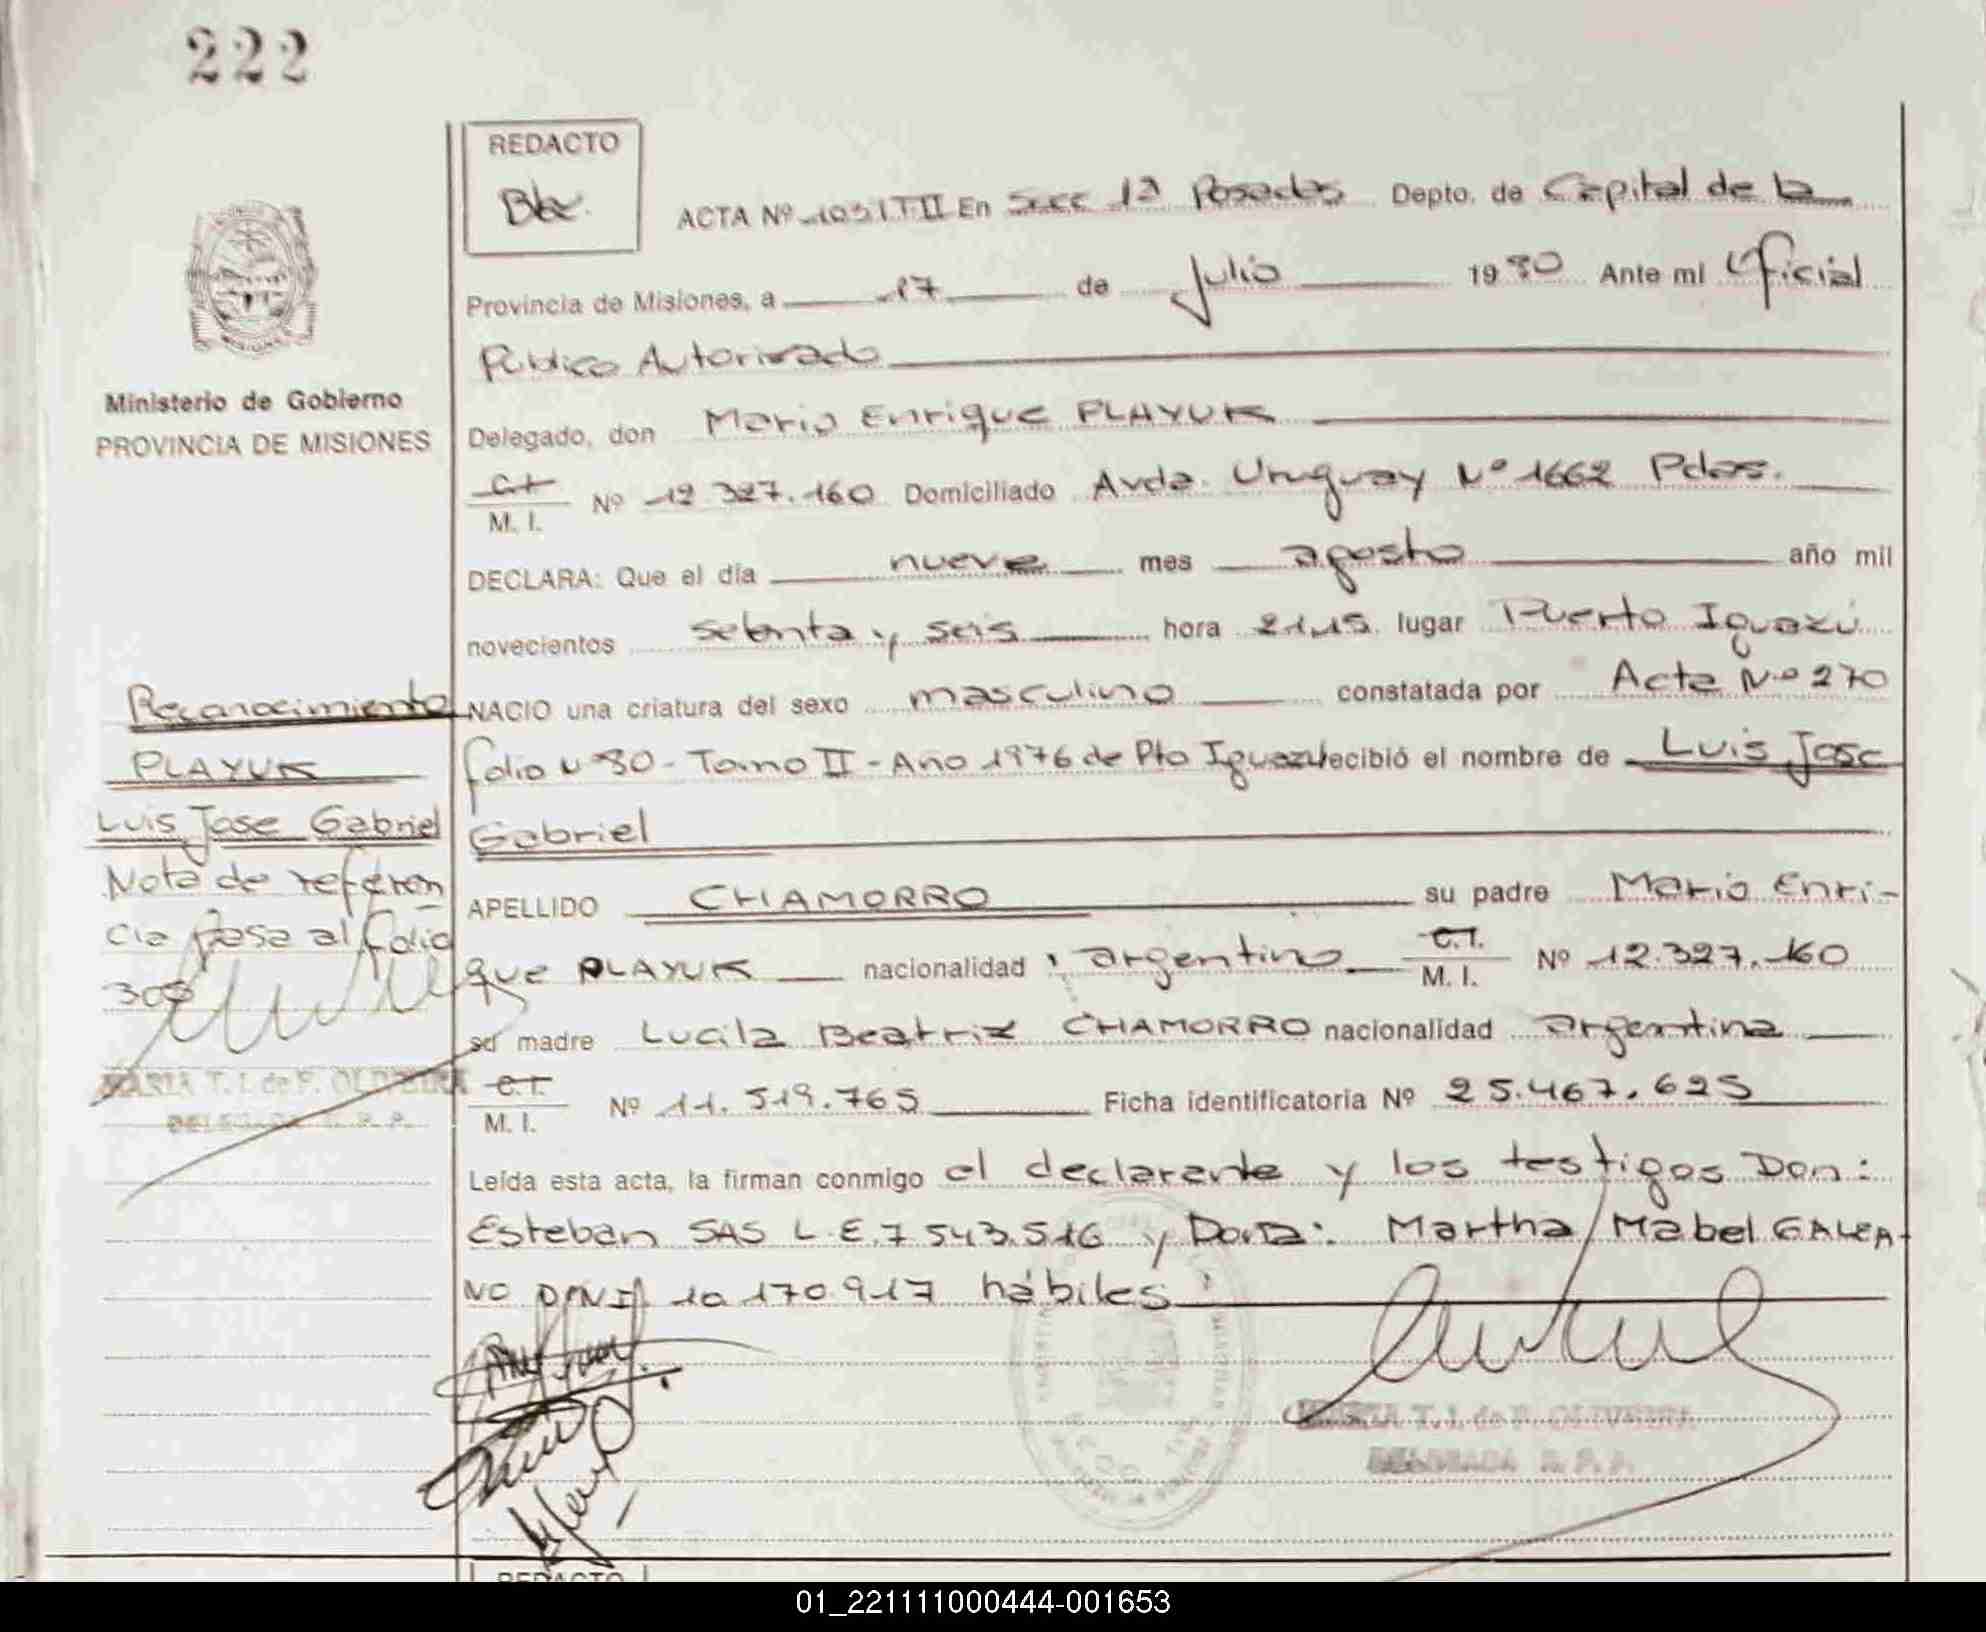 222
REDACTO
Bla.
ACTA Nº 1031 T II En Secc 1ª Posadas Depto. de Capital de la
Provincia de Misiones, a 17 de Julio 1980 Ante mi Oficial
Público Autorizado
Ministerio de Gobierno
PROVINCIA DE MISIONES
Delegado, don Mario Enrique PLAYUK
C.I.
M. I. Nº 12 327.160 Domiciliado Avda. Uruguay Nº 1662 Pdas.
DECLARA: Que el día nueve mes agosto año mil
novecientos setenta y seis hora 21,15 lugar Puerto Iguazú
NACIO una criatura del sexo masculino constatada por Acta Nº 270
folio Nº 80 - Tomo II - Año 1976 de Pto Iguazú recibió el nombre de Luis Jose
Gabriel
APELLIDO CHAMORRO su padre Mario Enri-
que PLAYUK nacionalidad argentino C.I.
M. I. Nº 12.327.160
su madre Lucila Beatriz CHAMORRO nacionalidad argentina
C.I.
M. I. Nº 11.519.765 Ficha identificatoria Nº 25.467.625
Leída esta acta, la firman conmigo el declarante y los testigos Don:
Esteban SAS L.E. 7 543.516 y Doña: Martha Mabel GALEA-
NO DNI 10 170.917 hábiles
Reconocimiento
PLAYUK
Luis Jose Gabriel
Nota de referen
cia pasa al folio
308
MARIA T. I. de F. OLIVEIRA
DELEGADA R. P. P.
MARIA T. I. de F. OLIVEIRA
DELEGADA R. P. P.
REDACTO
01_221111000444-001653